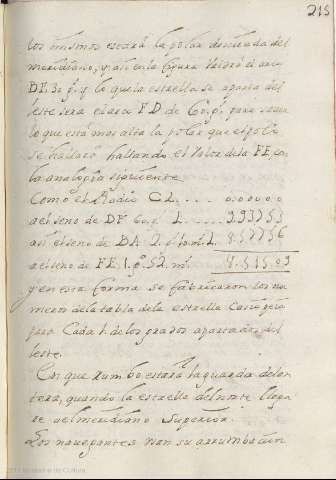 215
los mismos estará la polar desviada del
meridiano, y así en la figura valdrá el arco
DF. 30 g.s y lo que la estrella se aparta del
leste será el arco FD de 60 g.s para saver
lo que está mas alta la polar que el polo
se hallará hallando el valor de la FE, con
la analogia siguiente
Como el Radio C L. . . . . 0.00000
a el seno de DF 60 g.s L. . . . . 993753
así el seno de DA 2. g.s m.s L. 8.57756
a el seno de FE 1. g.o 52 m.s 8.51509
y en esta forma se fabricaron los nu
meros de la tabla de la estrella
para Cada 1. de los grados apartados del
leste.
Con que Rumbo estará la guarda delan
tera, quando la estrella del norte llega
re al meridiano superior.
Los navegantes son su arrumbacion